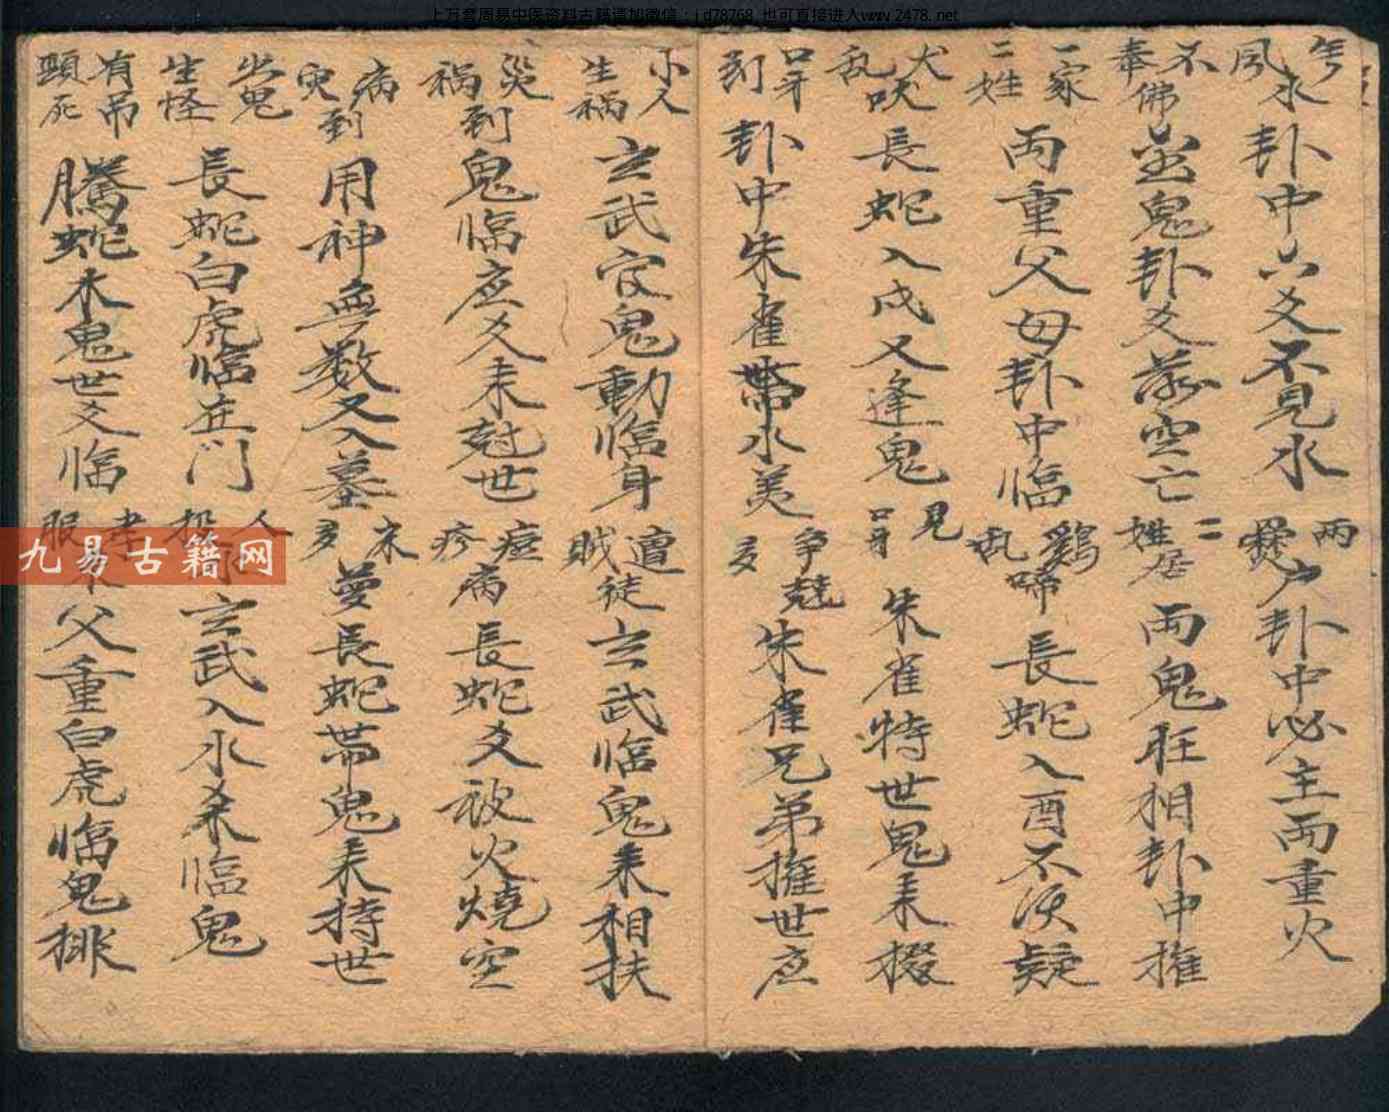 上万套周易中医资料古籍请加微信：jd78768 也可直接进入www.2478.net
风水 卦中六爻不見水 兩爨户 卦中必主兩重火
不奉佛 金鬼卦爻落空亡 二姓居 兩鬼旺相卦中推
一家二姓 両重父母卦中臨 鷄乱啼 長蛇入酉不須疑
犬乱吠 長蛇入戌又逢鬼 見口牙 朱雀持世鬼来掇
口牙到 卦中朱雀帶水美 争兢多 朱雀兄弟推世应
小人生祸 玄武官鬼動临身 遭賊徒 玄武临鬼来相扶
災祸到 鬼臨应爻来尅世 症疹病 長蛇爻被火燒空
病灾到 用神無数又入墓 夢 長蛇帶鬼来持世
出鬼生怪 長蛇白虎临在门 人投 玄武入水来临鬼
有吊頸死 騰蛇木鬼世爻临 孝服 父重白虎临鬼排
九易古籍网